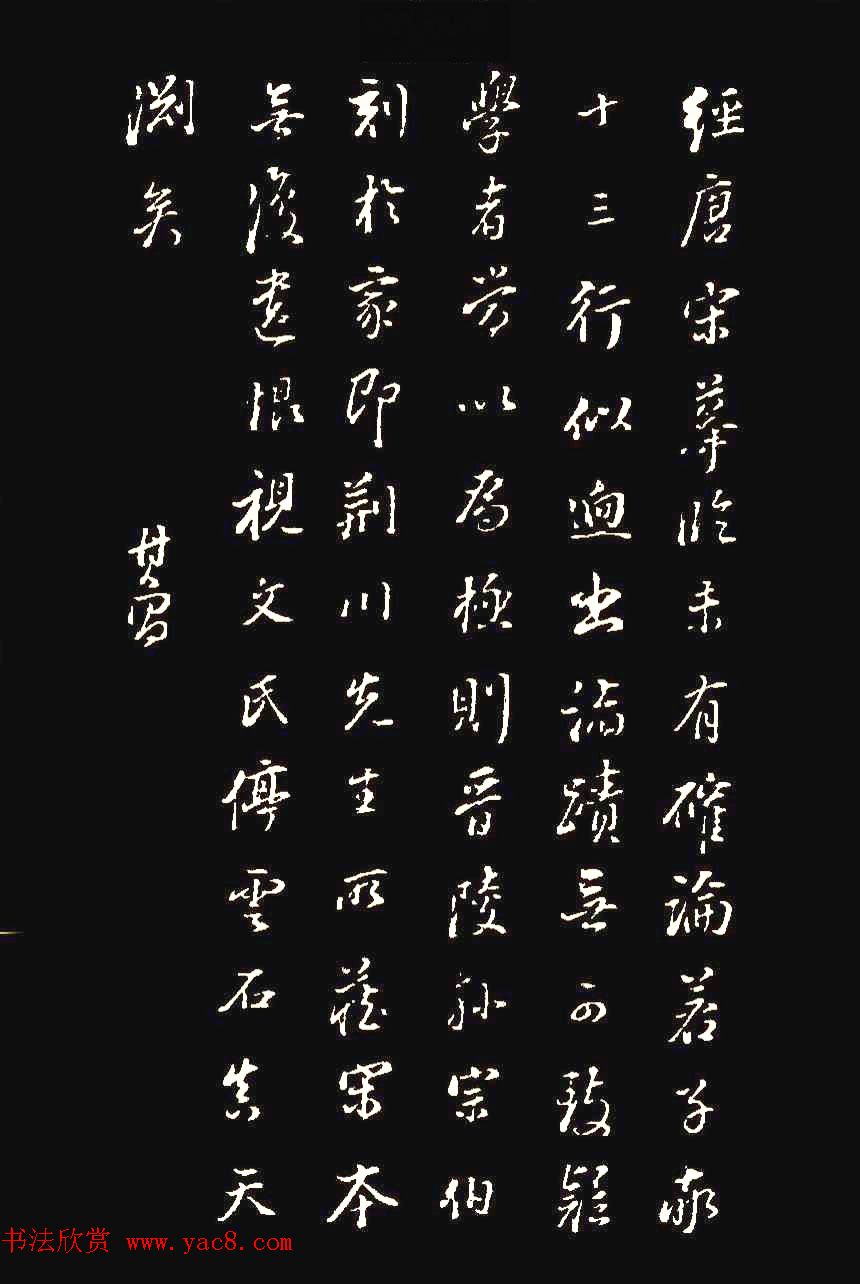 經唐宋摹臨未有確論若子敬
十三行似逈出諸蹟無可致疑
學者當以爲極則晉陵孫宗伯
刻於家即荆川先生所藏宋本
無復遺恨視文氏停雲石真天
淵矣
其昌
书法欣赏 www.yac8.com